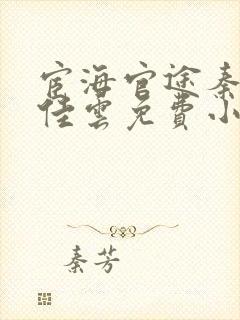 宦海官途秦
佳雲免費小
秦芳